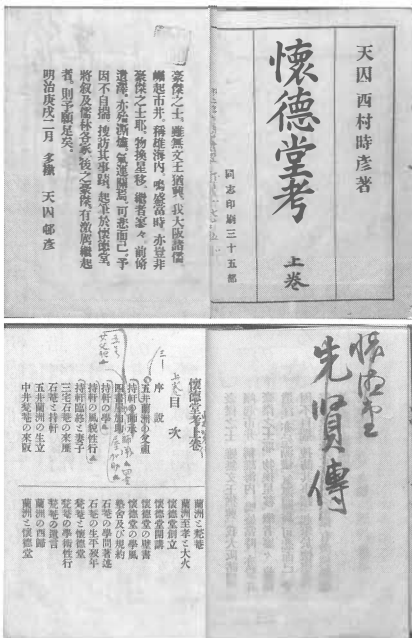 天囚 西村時彥著
懷德堂考 上卷
同志印刷三十五部
豪傑之士。雖無文王猶興。我大阪諸儒
崛起市井。稱雄海內。鳴盛當時。亦豈非
豪傑之士耶。物換星移。繼者寥々。前脩
遺澤。亦殆澌竭。氣運關焉。可悲而已。予
因不自揣。搜訪其事蹟。起筆於懷德堂。
將敍及儒林各家。後之豪傑。有激厲繼起
者。則予願足矣。
明治庚戌二月 天囚邨彥
懷德堂
先賢傳
懷德堂考上卷
目次
序說
五井蘭洲の父祖
持軒の師承
四書屋加助
持軒の學
持軒の風貌性行
持軒臨終と妻子
三宅石菴の來歷
石菴と持軒
五井蘭洲の生立
中井甃菴の來阪
蘭洲と甃菴
蘭洲至孝と大火
懷德堂創立
懷德堂開講
懷德堂の壁書
懷德堂の學風
塾舍及び規約
石菴の學問著述
石菴の生平歿年
甃菴と懷德堂
甃菴の學術性行
甃菴の遺言
蘭洲の西歸
蘭洲と懷德堂